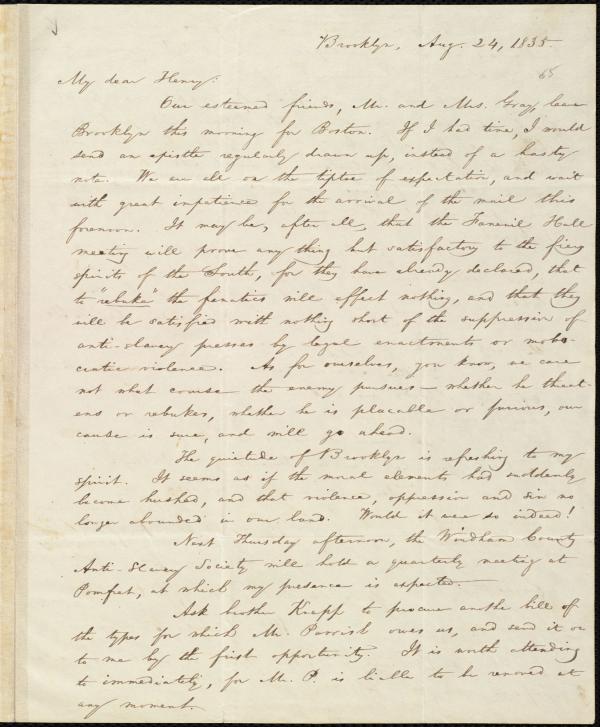 Brooklyn, Aug. 24, 1835.
65
My dear Henry:
Our esteemed friends, Mr. and Mrs. Gray, leave
Brooklyn this morning for Boston. If I had time, I would
send an epistle regularly drawn up, instead of a hasty
note. We are all on the tiptoe of expectation, and wait
with great impatience for the arrival of the mail this
forenoon. It may be, after all, that the Faneuil Hall
meeting will prove any thing but satisfactory to the fiery
spirits of the South, for they have already declared, that
to "rebuke" the fanatics will effect nothing, and that they
will be satisfied with nothing short of the suppression of
anti-slavery presses by legal enactments or mobo-
cratic violence. As for ourselves, you know, we care
not what course the enemy pursues—whether he threat-
ens or rebukes, whether he is placable or furious, our
cause is sure, and will go ahead.
The quietude of Brooklyn is refreshing to my
spirit. It seems as if the moral elements had suddenly
become hushed, and that violence, oppression and sin no
longer abounded in our land. Would it were so indeed!
Next Thursday afternoon, the Windham County
Anti-Slavery Society will hold a quarterly meeting at
Pomfret, at which my presence is expected.
Ask brother Knapp to procure another bill of
the types for which Mr. Parrish owes us, and send it on
to me by the first opportunity. It is worth attending
to immediately, for Mr. P. is liable to be removed at
any moment.